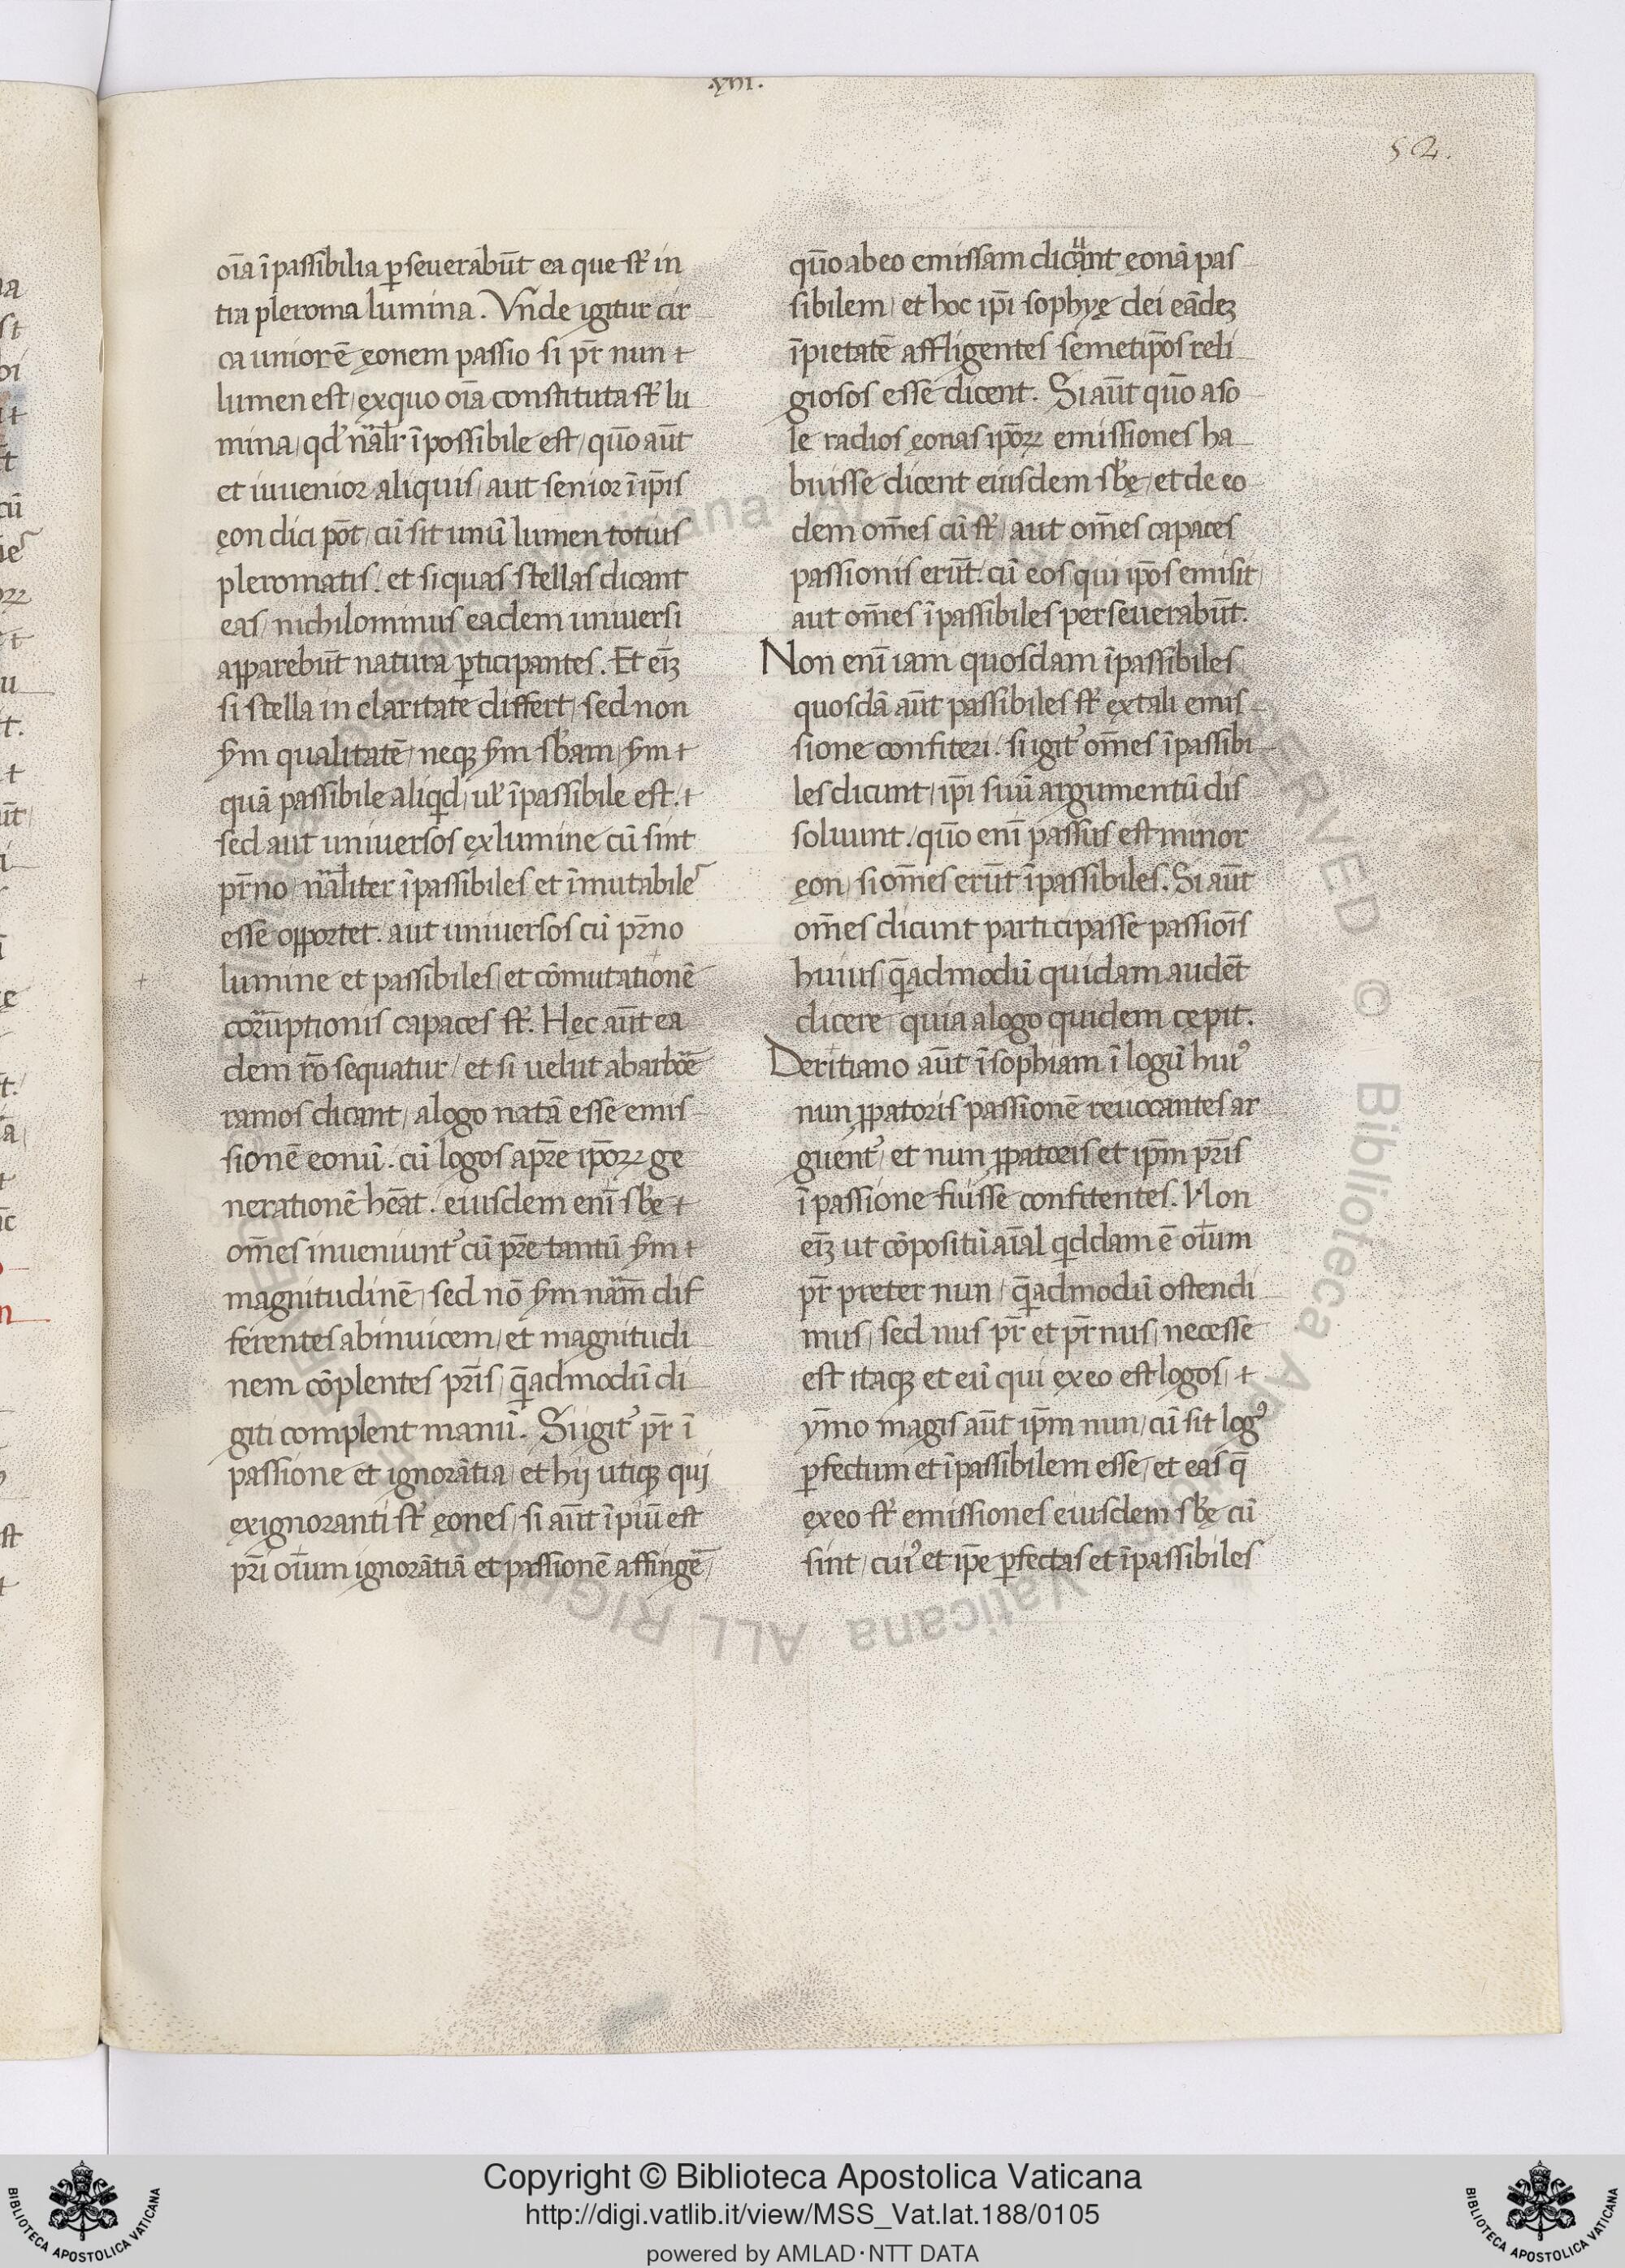 .xiii.
52.
oīa īpassibilia ꝑseuerabūt ea que st̄ in
tra pleroma lumina. Vnde igitur cir
ca uniorē ęonem passio si pr̄ nun ⁊
lumen est, ęxquo oīa constituta st̄ lu
mina, qd' nāl'r īpossibile est, quō aūt
et iuuenior aliquis, aut senior ī ip̄is
ęon dici pōt, cū sit unū lumen totius
pleromatis. et si quas stellas dicant
eas, nichilominus eadem uniuersi
apparebūt natura ꝑticipantes. Et eīꝫ
si stella in claritate differt, sed non
s̄m qualitatē, neqꝫ s̄m sb̄am, s̄m ⁊
quā passibile aliqd, ul' īpassibile est. ⁊
sed aut uniuersos ęxlumine cū sint
pr̄no, nāliter īpassibiles et īmutabile͛
esse opportet. aut uniuersos cū pr̄no
lumine et passibiles, et cōmutationē
corrūptionis capaces st̄. Hęc aūt ea
dem rō sequatur, et si uelut abarboē
ramos dicant, alogo natā esse emis
sionē eonū. cū logos apr̄e ip̄oꝝ ge
nerationē hēat. eiusdem enī sb̄ę ⁊
om̄es inueniunt᾽ cū pr̄e tantū s̄m ⁊
magnitudinē, sed nō s̄m nām̄ dif
ferentes abinuicem, et magnitudi
nem cōplentes pr̄is, q̄admodū di
giti complent manū. Si igit᾽ pr̄ ī
passione et ignorātia, et hij utiqꝫ qui
ęxignoranti st̄ ęones, si aūt īpiū est
pr̄i oīum ignorātiā et passionē affingē,
quō abeo emissam dicunt ęonā pas
sibilem, et hoc ip̄i sophyę dei eādeꝫ
īpietatē affligentes semetip̄os reli
giosos esse dicent. Si aūt quō aso
le radios ęonas ip̄oꝝ emissiones ha
buisse dicent eiusdem sb̄ę, et de eo
dem om̄es cū st̄, aut om̄es capaces
passionis erūt. cū eos qui ip̄os emisit,
aut om̄es īpassibiles perseuerabūt.
Non enī iam quosdam īpassibiles
quosdā aūt passibiles st̄ ęxtali emis
sione confiteri. si igit᾽ om̄es īpassibi
les dicunt, ip̄i suū argumentū dis
soluunt. quō enī passus est minor
ęon, si om̄es erūt īpassibiles. Si aūt
om̄es dicunt participasse passiōis
huius, q̄admodū quidam audēt
dicere, quia alogo quidem cępit.
Deritiano aūt ī sophiam ī logū hui᾽
nun ꝓpatoris passionē reuocantes ar
guent᾽, et nun ꝓpatoris et ip̄m pr̄is
ī passione fuisse confitentes. Non
eīꝫ ut cōpositū aīal qddam ē oīum
pr̄ preter nun, q̄admodū ostendi
mus, sed nus pr̄ et pr̄ nus, necesse
est itaqꝫ et eū qui ęxeo est logos, ⁊
ȳmo magis aūt ip̄m nun, cū sit log᾽
ꝑfectum et īpassibilem esse, et eas q̄
ęxeo st̄ emissiones eiusdem sb̄ę cū
sint, cui᾽ et ip̄e ꝑfectas et īpassibiles
Copyright © Biblioteca Apostolica Vaticana
http://digi.vatlib.it/view/MSS_Vat.lat.188/0105
powered by AMLAD·NTT DATA
BIBLIOTECA APOSTOLICA VATICANA
BIBLIOTECA APOSTOLICA VATICANA